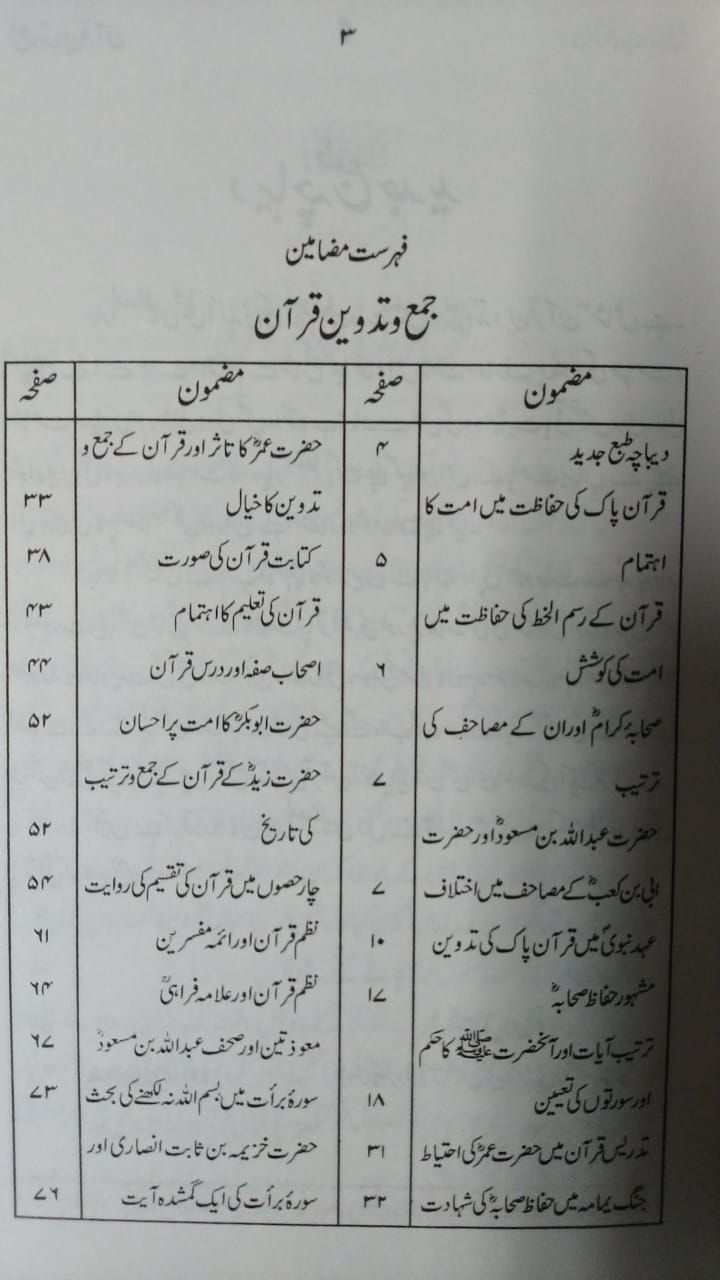 ۳
فہرست مضامین
جمع و تدوین قرآن
مضمون صفحہ
دیباچہ طبع جدید ۴
قرآن پاک کی حفاظت میں امت کا
اہتمام ۵
قرآن کے رسم الخط کی حفاظت میں
امت کی کوشش ۶
صحابۂ کرامؓ اور ان کے مصاحف کی
ترتیب ۷
حضرت عبداللہ بن مسعودؓ اور حضرت
ابی بن کعبؓ کے مصاحف میں اختلاف ۷
عہد نبویؐ میں قرآن پاک کی تدوین ۱۰
مشہور حفاظ صحابہؓ ۱۷
ترتیب آیات اور آنحضرت ﷺ کا حکم
اور سورتوں کی تعیین ۱۸
تدریس قرآن میں حضرت عمرؓ کی احتیاط ۳۱
جنگ یمامہ میں حفاظ صحابہؓ کی شہادت ۳۲
مضمون صفحہ
حضرت عمرؓ کا تاثر اور قرآن کے جمع و
تدوین کا خیال ۳۳
کتابت قرآن کی صورت ۳۸
قرآن کی تعلیم کا اہتمام ۴۳
اصحاب صفہ اور درس قرآن ۴۴
حضرت ابوبکرؓ کا امت پر احسان ۵۲
حضرت زیدؓ کے قرآن کے جمع و ترتیب
کی تاریخ ۵۲
چار حصوں میں قرآن کی تقسیم کی روایت ۵۴
نظم قرآن اور ائمہ مفسرین ۶۱
نظم قرآن اور علامہ فراہیؒ ۶۴
معوذتین اور صحف عبداللہ بن مسعودؓ ۶۷
سورۂ برأت میں بسم اللہ نہ لکھنے کی بحث ۷۳
حضرت خزیمہ بن ثابت انصاری اور
سورۂ برأت کی ایک گمشدہ آیت ۷۶